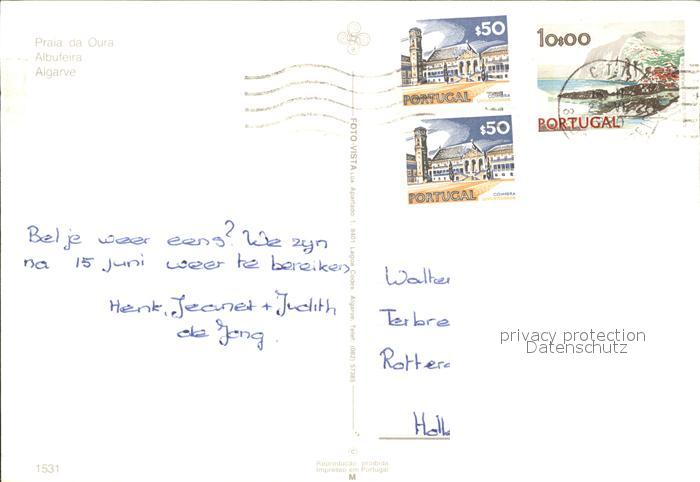 Praia da Oura
Albufeira
Algarve
$50
PORTUGAL
COIMBRA
$50
PORTUGAL
COIMBRA
10$00
PORTUGAL
FOTO-VISTA LDA Apartado 1, 8401 Lagoa Codex Algarve, Telef. (082) 57385
Bel je weer eens? We zijn
na 15 juni weer te bereiken
Henk, Jeanet + Judith
de Jong.
Walter
Terbre
Rotterd
Holl
privacy protection
Datenschutz
1531
©
Reprodução proibida
Impresso em Portugal
M